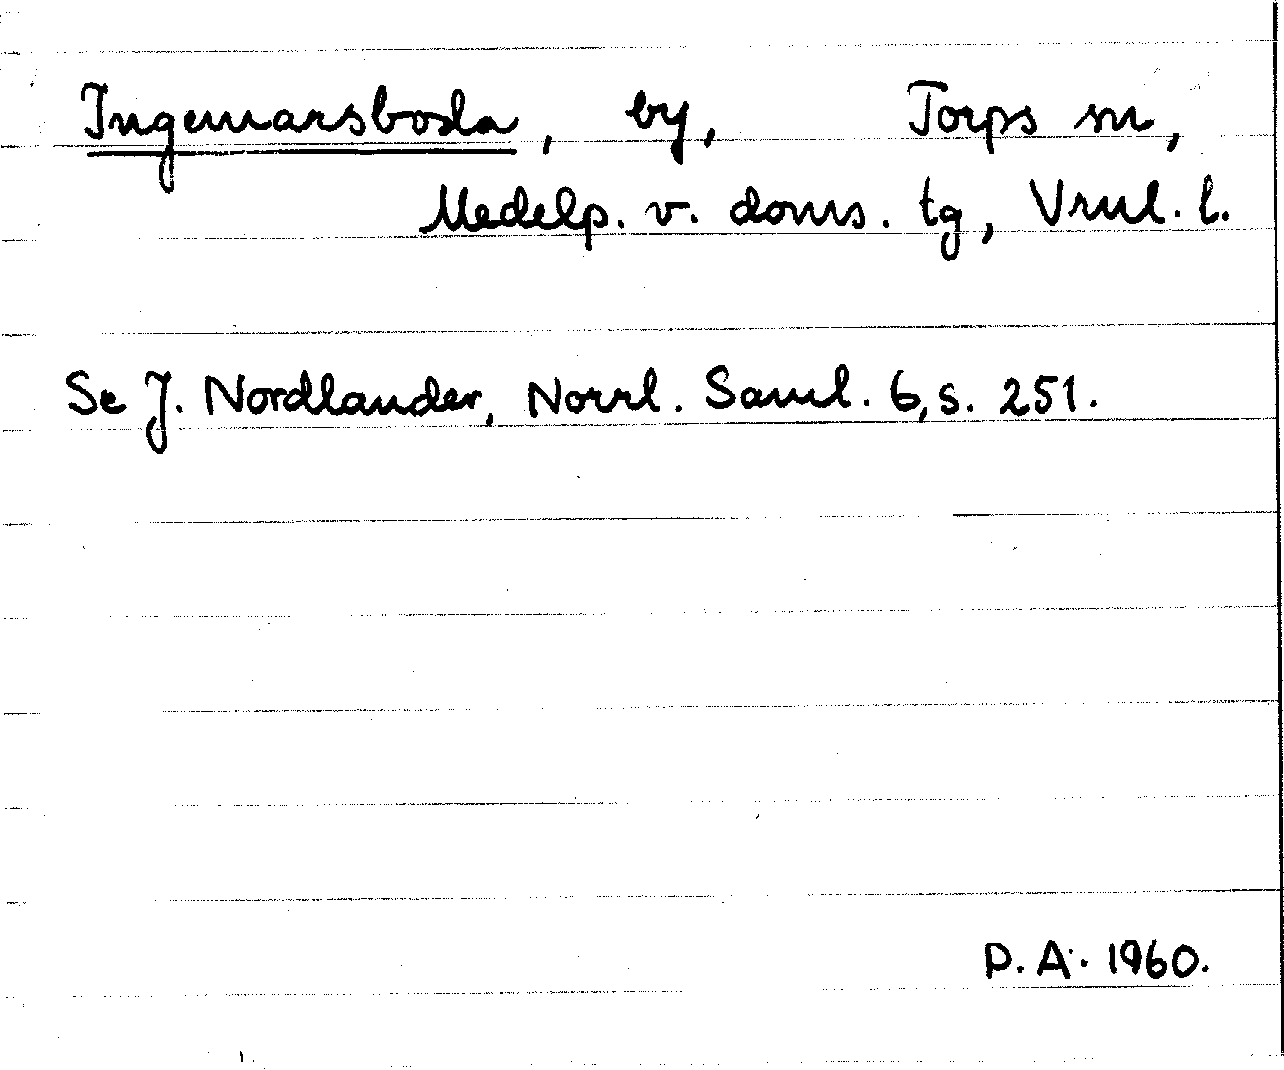 Ingemarsboda, by, Torps sn,
Medelp. v. doms. tg, Vrnl. l.
Se J. Nordlander, Norrl. Saml. 6, s. 251.
P.A. 1960.